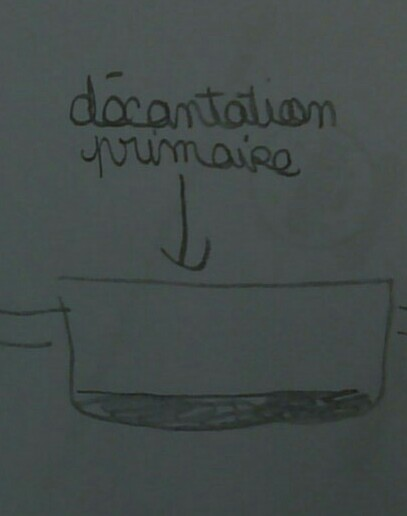 décantation
primaire